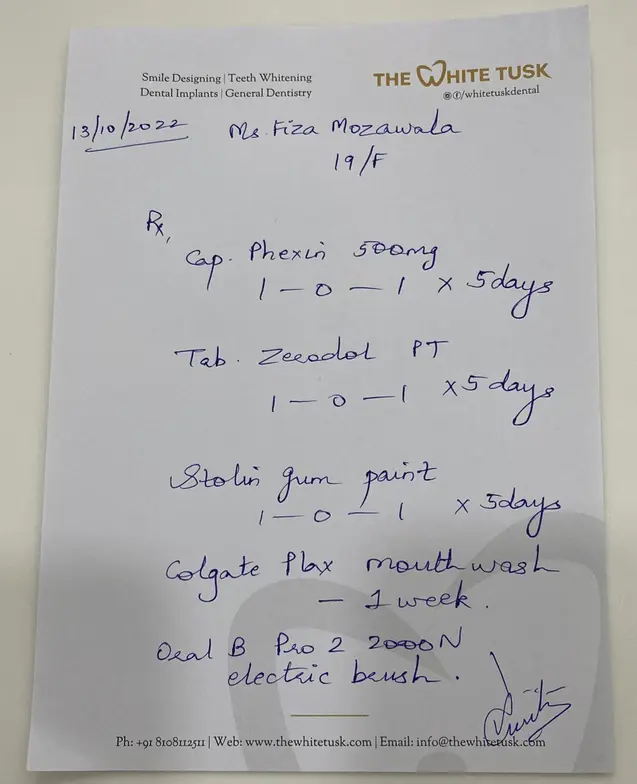 Smile Designing | Teeth Whitening
Dental Implants | General Dentistry
THE WHITE TUSK
/whitetuskdental
13/10/2022 Ms. Fiza Mozawala
19/F
Rx,
Cap. Phexin 500mg
1 — 0 — 1 x 5days
Tab. Zerodol PT
1 — 0 — 1 x 5 days
Stolin gum paint
1 — 0 — 1 x 5days
Colgate Plax mouthwash
— 1 week.
Oral B Pro 2 2000N
electric brush.
Ph: +91 8108112511 | Web: www.thewhitetusk.com | Email: info@thewhitetusk.com